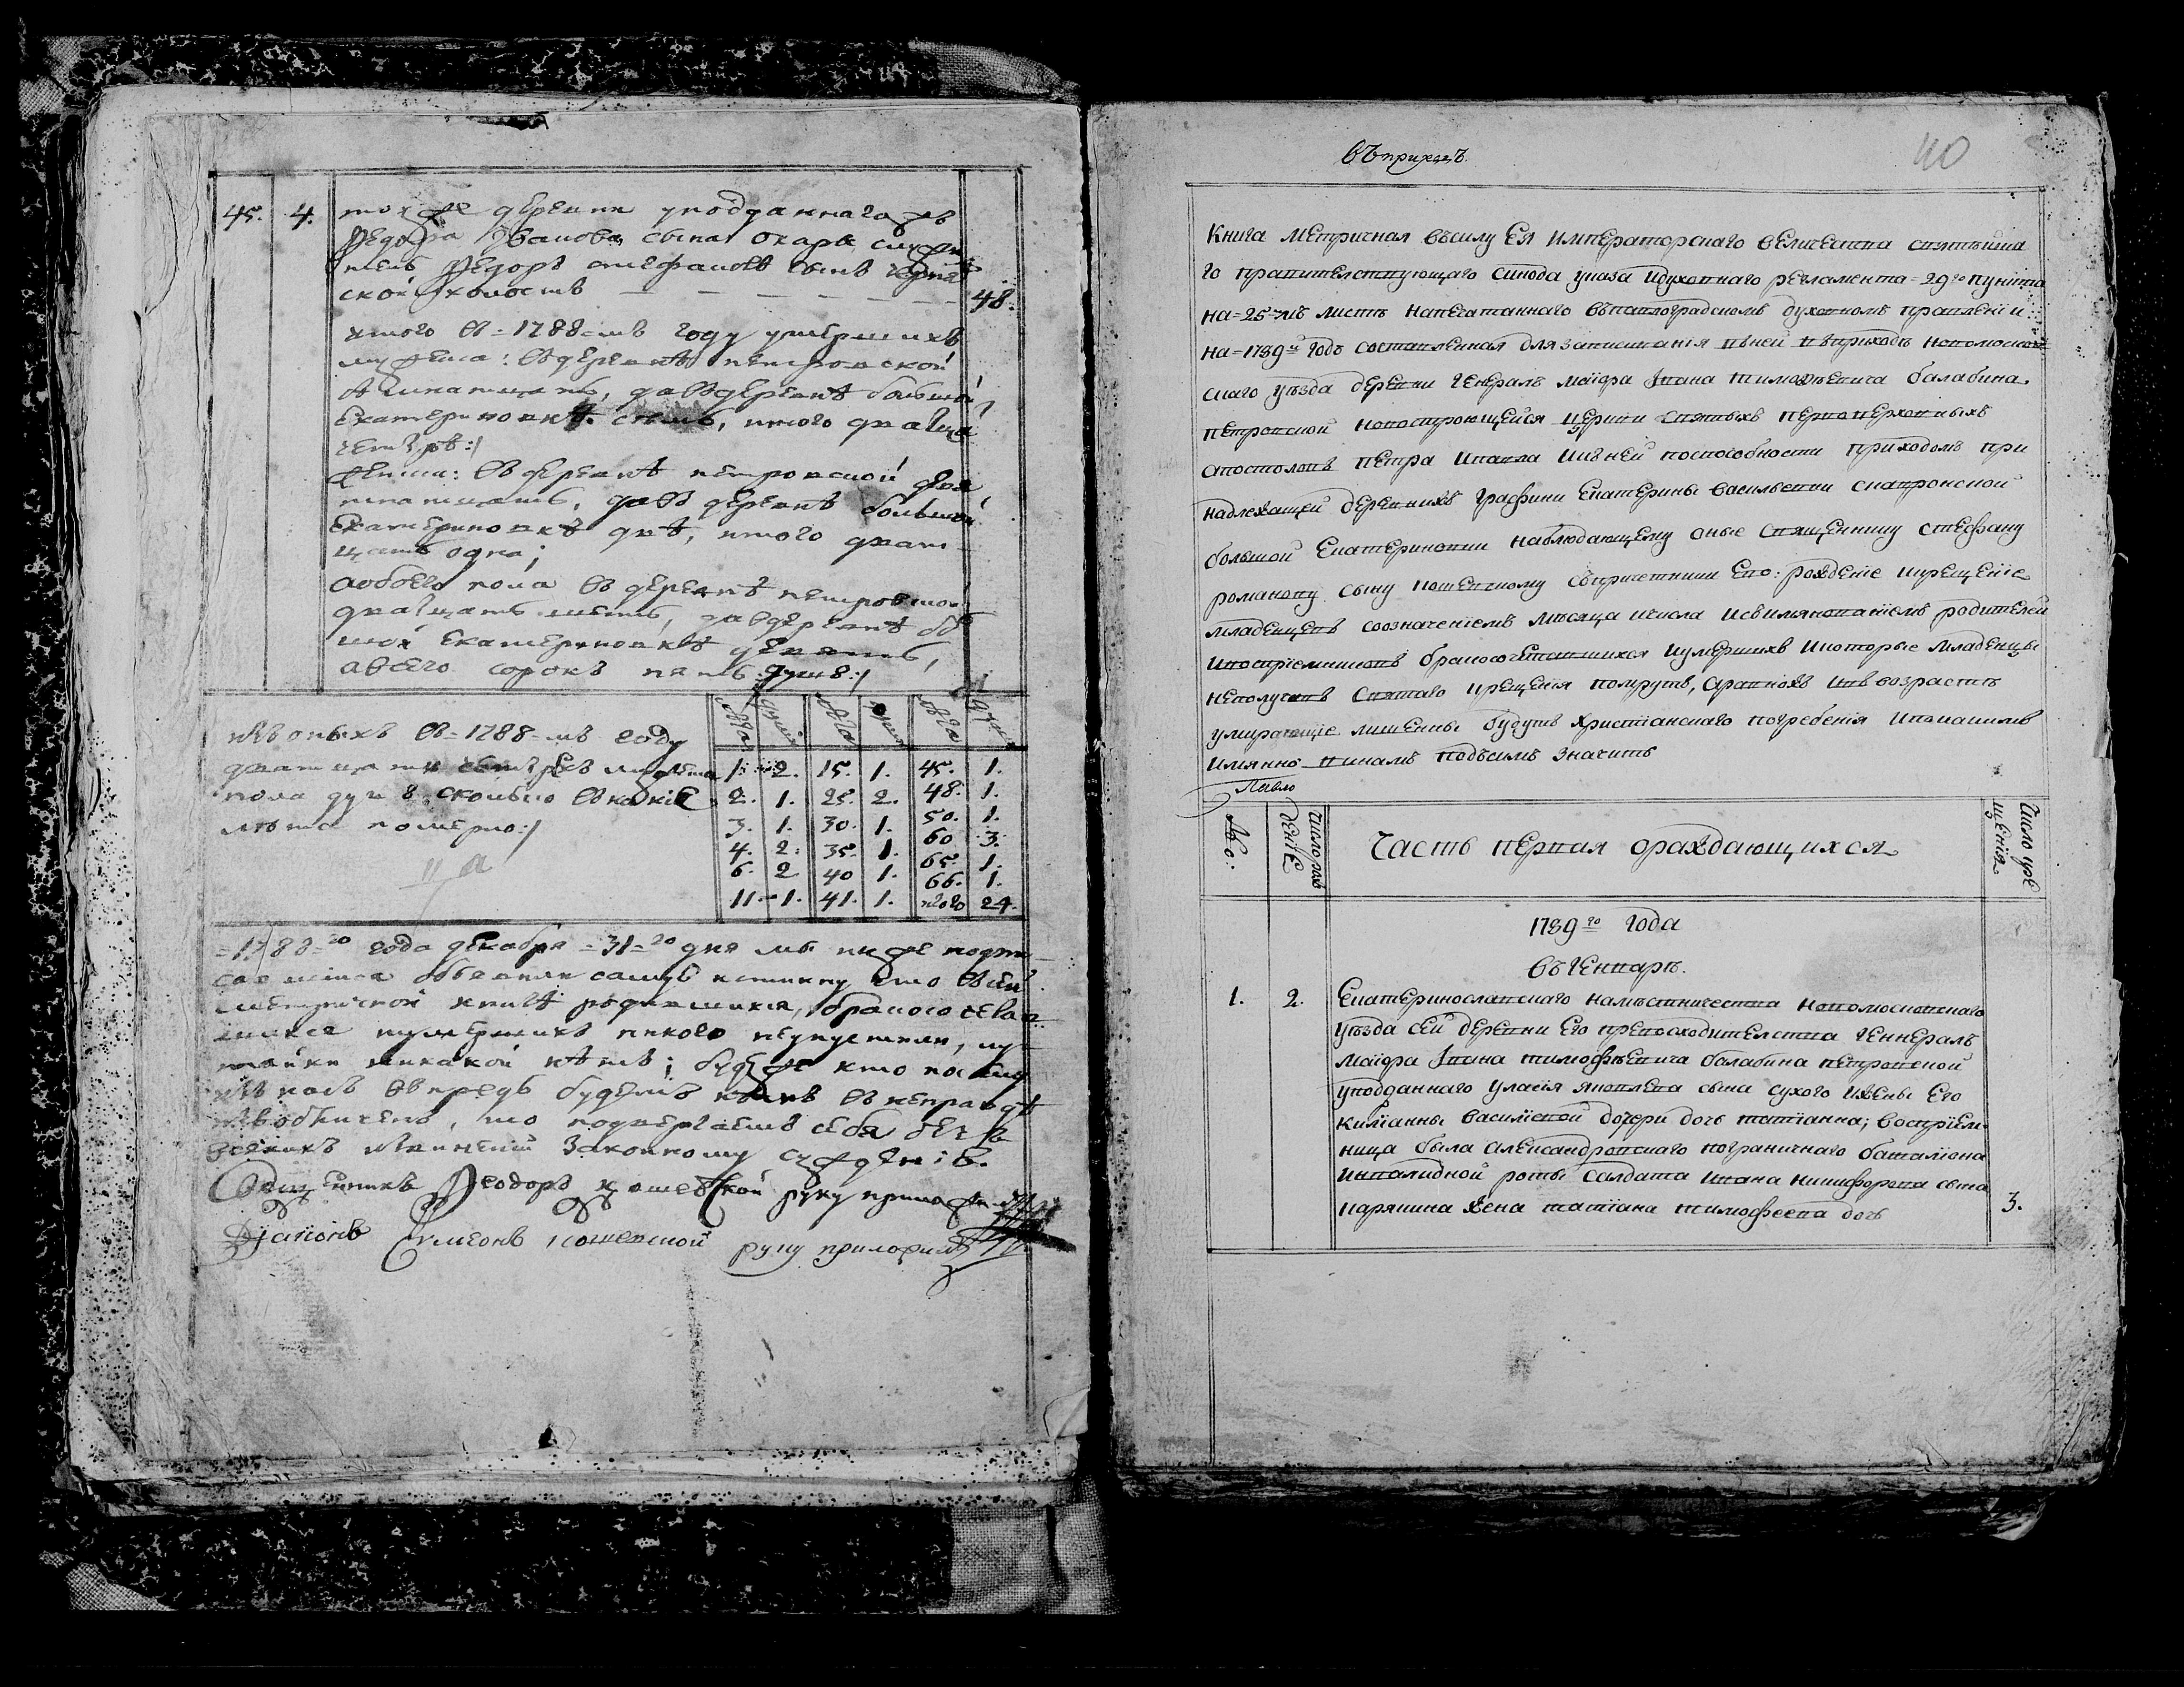 45. 4. тойже деревни уподданнаго жъ
Федора Иванова сына Окары служи
тель Федоръ Стефановъ сынъ
ской холостъ — — — — — — — 48.
итого въ = 1788 = мъ году умершихъ
мужеска: въ деревнѣ петровской
да въ деревнѣ большой
Екатериновкѣ семь, итого дватцать
четыре:/
женска: въ деревнѣ петровской
да въ деревнѣ большой
Екатериновкѣ двѣ, итого дват
цать одна;
а обоего пола въ деревнѣ петровской
дватцать шесть, да въ деревнѣ бо
шой Екатериновкѣ девять,
а всего сорокъ пять душъ:/
Лѣта души Лѣта души Лѣта души
изъ оныхъ въ = 1788 = мъ году
дватцати четырехъ мужеска
пола душъ сколько въ какие
лѣта померло:/
1. 2. 15. 1. 45. 1.
2. 1. 25. 2. 48. 1.
3. 1. 30. 1. 50. 1.
4. 2. 35. 1. 60. 3.
6. 2. 40 1. 65. 1.
11. 1. 41. 1. 66. 1.
итого 24.
= 1788 = го года декабря = 31 = го дня мы ниже подпи
савшіися объявили самую истинну что въ сей
метрической книгѣ родившихся, бракосочетав
шихся и умершихъ никого не упустили, и у
тайки никакой нѣтъ; будеже кто по сему
изъ насъ впредь будетъ въ неправдѣ
изобличенъ, то подвергаемъ себя безъ
всякихъ извиненій законному сужденію.
Священникъ Ѳеодоръ Кошевской руку приложилъ
Діаконъ Сумеонъ Кошевской руку приложилъ
въ приходъ
40
Книга метричная въ силу Ея Императорскаго величества святѣйша
го правителствующаго Синода указа и духовнаго регламента = 29го пункта
на = 25 = мъ листѣ напечатаннаго въ павлоградскомъ духовномъ правленіи
на = 1789й годъ составленная для записыванія въ ней въ приходѣ новомосков
скаго уѣзда деревни генералъ маіора Ивана Тимофѣевича Балабина
петровской новостроющейся церкви святыхъ первоверховныхъ
апостоловъ петра и павла и къ ней по способности приходомъ при
надлежащей деревнихъ графини Екатерины Васильевни Скавронской
большой Екатериновки наблюдающему оные священнику Стефану
романову сыну Кошевскому съ причетники Его: рожденіе и крещеніе
младенцевъ со означеніемъ мѣсяца и числа и съ имянованіемъ родителей
и воспріемниковъ бракосочетавшихся и умершихъ и которые младенцы
неполучивъ святаго крещенія помрутъ, а равножъ и въ возрастѣ
умирающіе лишенны будутъ христіанскаго погребенія и по какимъ
имянно винамъ подъ симъ значитъ
Павло
№о: число рож деніе Часть первая о раждающихся число кре щенія
1789го года
въ генварѣ.
1. 2. Екатеринославскаго намѣстничества новомосковскаго
уѣзда сей деревни Его превосходителства генералъ
маіора Ивана Тимофѣевича Балабина петровской
уподданнаго уласія яковлева сына сухого и жены Его
киліанны василіевой дочери дочь татіанна; воспріем
ница была александровскаго пограничнаго баталіона
инвалидной роты салдата ивана никифорева сына
карякина жена татіана тимофеева дочь 3.